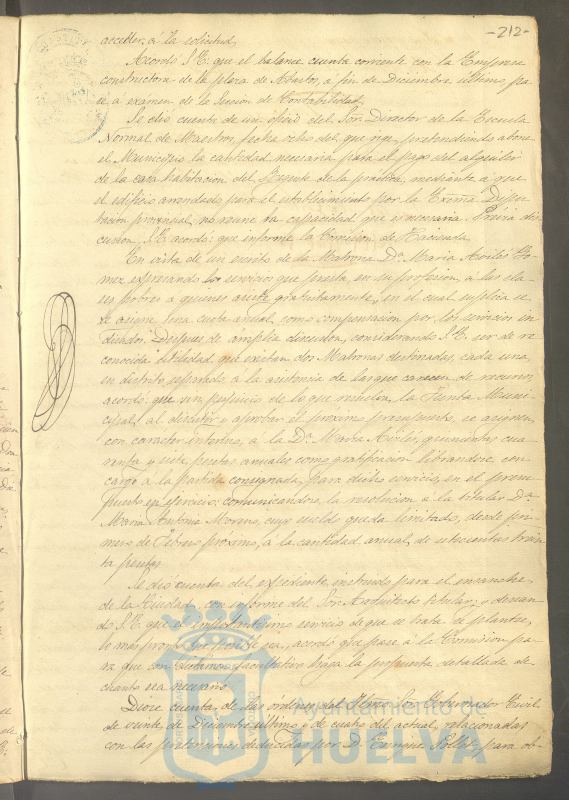 -212-
acceder á la solicitud.
Acordó S.E. que el balance cuenta corriente con la Empresa
constructora de la plaza de Abastos, á fin de Diciembre último, pa
se a examen de la Sección de Contabilidad.
Se dió cuenta de un oficio del Sor. Director de la Escuela
Normal de Maestros, fecha ocho del que rige, pretendiendo abone
el Municipio la cantidad necesaria para el pago del alquiler
de la casa habitacion del Regente de la práctica, mediante á que
el edificio arrendado para el establecimiento por la Excma. Dipu
tacion provincial, no reune la capacidad que es necesaria. Previa dis
cusion, S.E. acordó: que informe la Comision de Hacienda.
En vista de un escrito de la Matrona Dª. Maria Avilés Go-
mez expresando los servicios que presta en su profesion á las cla
ses pobres a quienes asiste gratuitamente, en el cual suplica se
le asigne una cuota anual como compensacion por los servicios in
dicados. Despues de amplia discusion, considerando S.E. ser de re
conocida utilidad que existan dos Matronas destinadas, cada una
en distrito separado, á la asistencia de las que carecen de recursos,
acordó: que sin perjuicio de lo que resuelva la Junta Muni-
cipal al discutir y aprobar el próximo presupuesto, se asignen,
con caracter interino, a la Dª. Maria Avilés, quinientas cua
renta y siete pesetas anuales como gratificacion librandose, con
cargo a la partida consignada para dicho servicio, en el presu
puesto en ejercicio; comunicandose la resolucion á la titular Dª
Maria Antonia Moreno, cuyo sueldo queda limitado, desde pri
mero de Febrero próximo, á la cantidad anual de setecientas trein
ta pesetas.
Se dió cuenta del expediente instruido para el ensanche
de la Ciudad, con informe del Sor. Arquitecto titular; y desean
do S.E. que el importantísimo servicio de que se trata se plantee,
lo más pronto que posible sea, acordó que pase á la Comision pa
ra que con dictámen facultativo haga la propuesta detallada de
cuanto sea necesario.
Diose cuenta de las órdenes del Iltmo. Sor. Gobernador Civil
de veinte de Diciembre último y de cuatro del actual, relacionadas
con las pretensiones deducidas por D. Carmine Pollet, para ob-
Ayuntamiento de
HUELVA